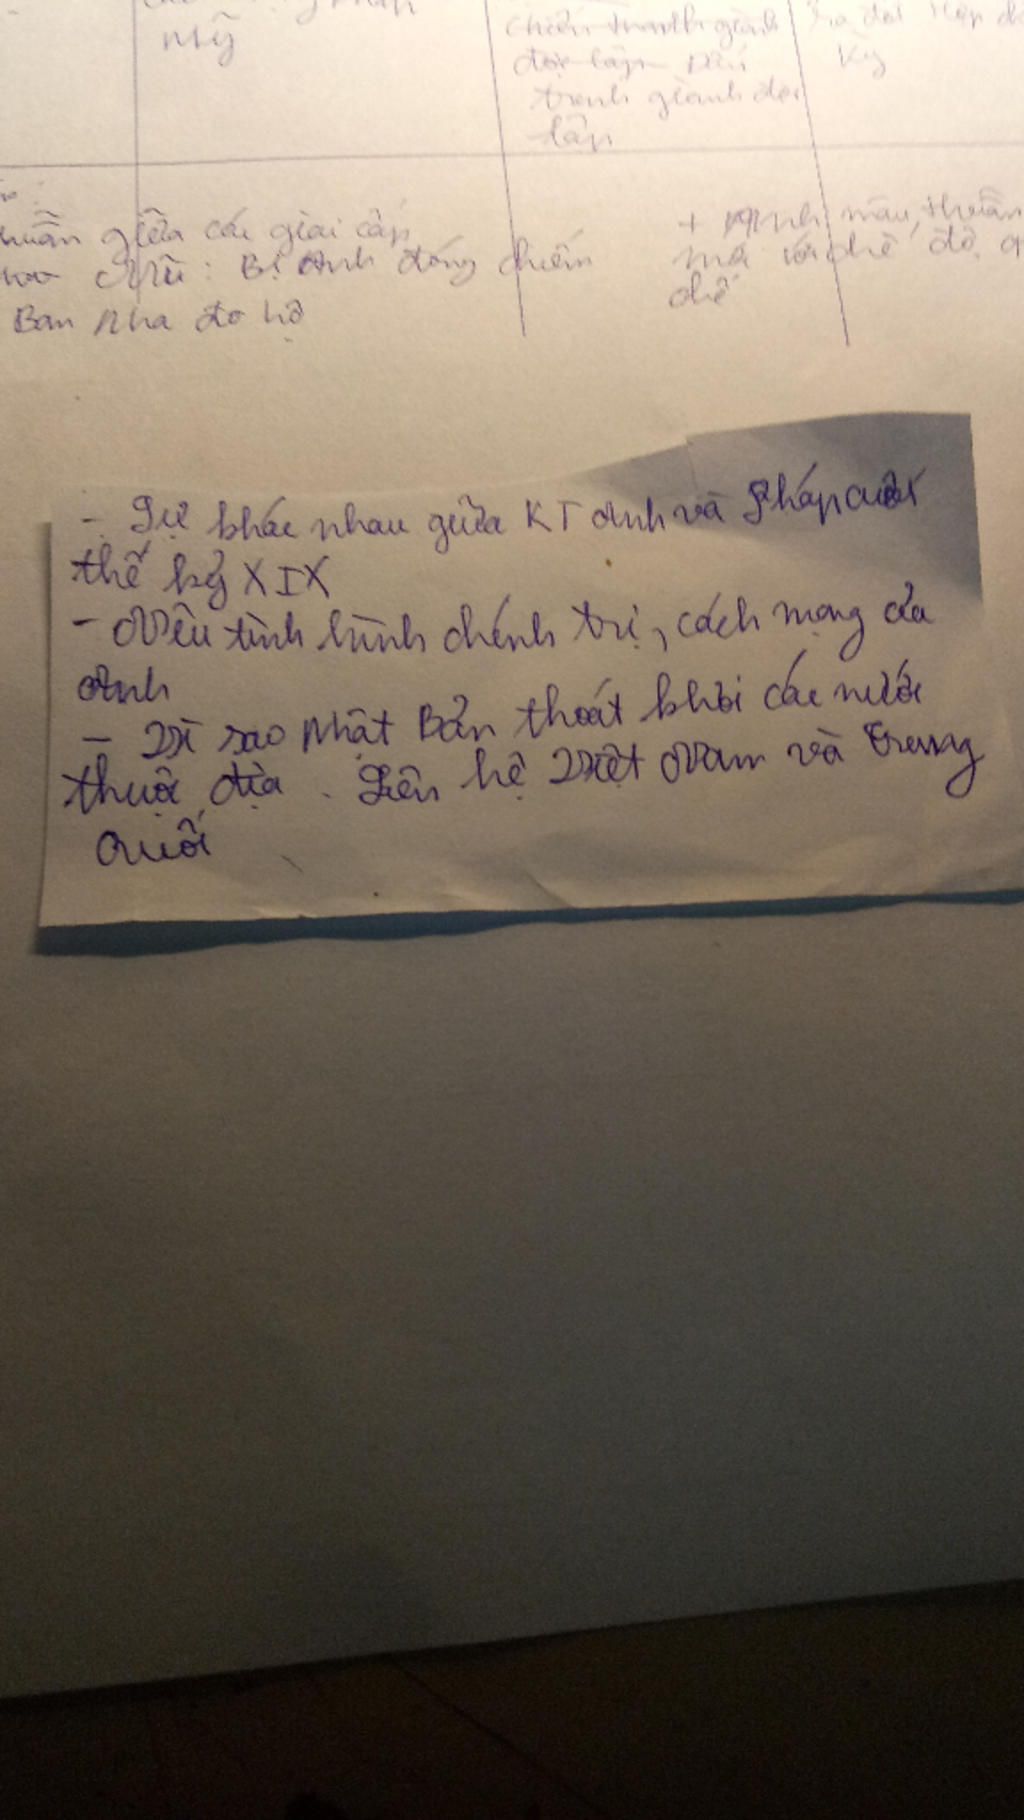 Mỹ
chiến tranh giành
độc lập Đấu
tranh giành độc
lập
ra đời Hợp
Kỳ
thuẫn giữa các giai cấp
Mĩ: Bị Anh đóng chiếm
Ban Nha đô hộ
+ mâu thuẫn
mới với chế độ
chế
- Sự khác nhau giữa KT Anh và Pháp cuối
thế kỷ XIX
- Nêu tình hình chính trị, cách mạng của
Anh
- Vì sao Nhật Bản thoát khỏi các nước
thuộc địa. Liên hệ Việt Nam và Trung
Quốc